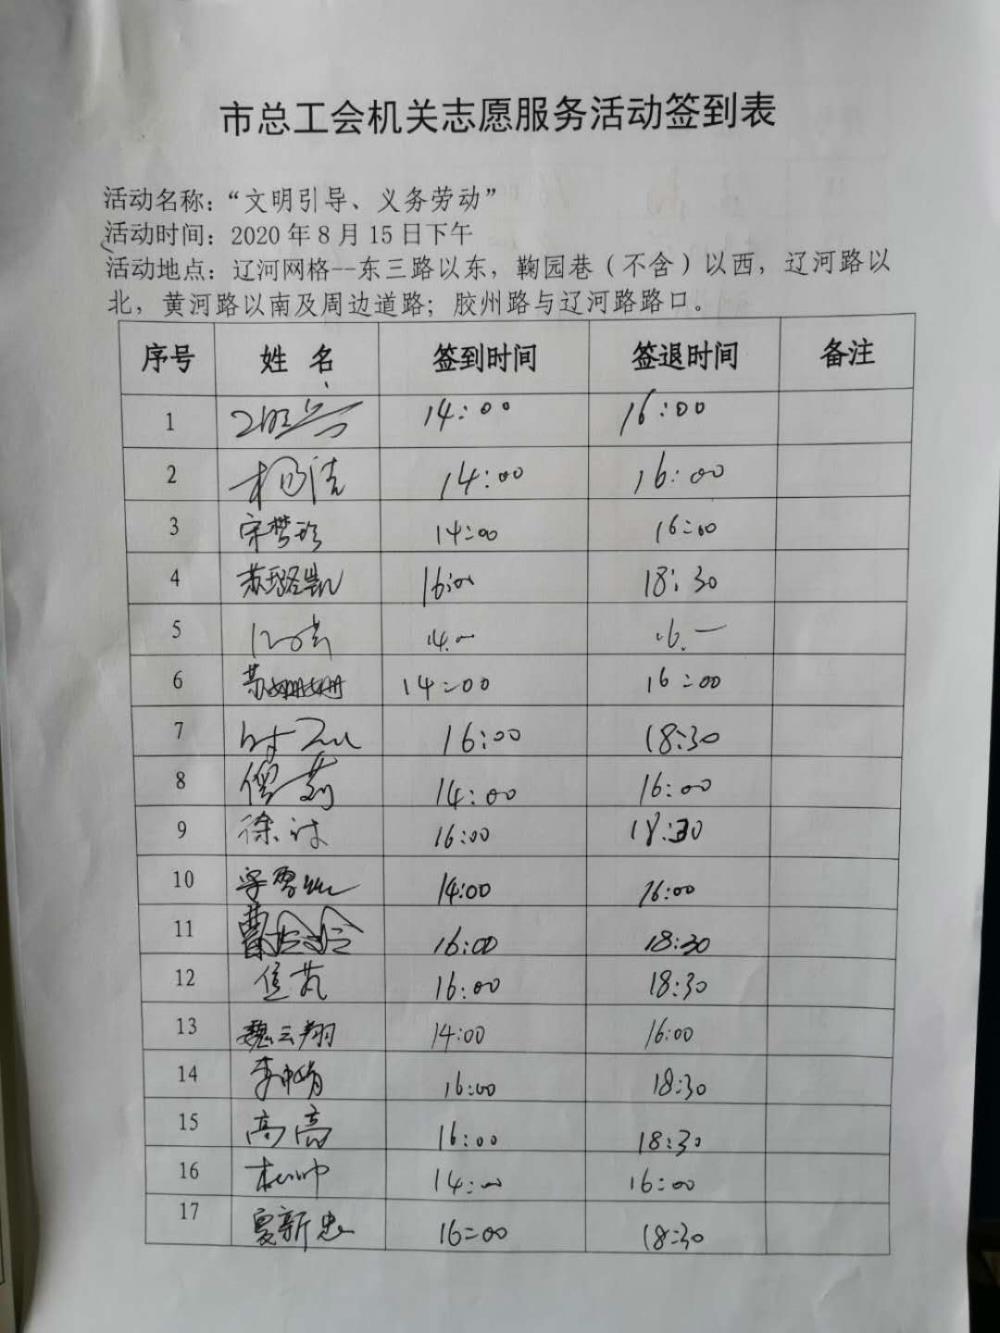 市总工会机关志愿服务活动签到表
活动名称：“文明引导、义务劳动”
活动时间：2020年8月15日下午
活动地点：辽河网格--东三路以东，鞠园巷（不含）以西，辽河路以
北，黄河路以南及周边道路；胶州路与辽河路路口。
序号 姓 名 签到时间 签退时间 备注
1 14:00 16:00
2 杨洁 14:00 16:00
3 宋梦珍 14:00 16:00
4 苏璐凯 16:00 18:30
5 14.— 16.—
6 苏姗姗 14:00 16:00
7 16:00 18:30
8 14:00 16:00
9 徐 16:00 18:30
10 14:00 16:00
11 曹玲玲 16:00 18:30
12 16:00 18:30
13 魏云翔 14:00 16:00
14 李 16:00 18:30
15 高亮 16:00 18:30
16 杜帅 14:00 16:00
17 夏新忠 16:00 18:30